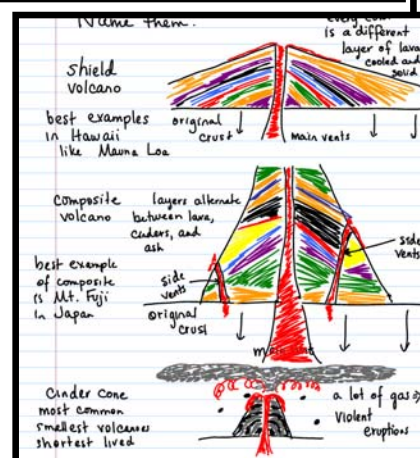 Name them.
every
is a different
layer of lava
cooled and
solid
shield
volcano
best examples
in Hawaii
like Mauna Loa
original
crust
main vents
composite
volcano
layers alternate
between lava,
cinders, and
ash
side
vents
best example
of composite
is Mt. Fuji
in Japan
side
vents
original
crust
cinder cone
most common
smallest volcanoes
shortest lived
a lot of gas
violent
eruptions